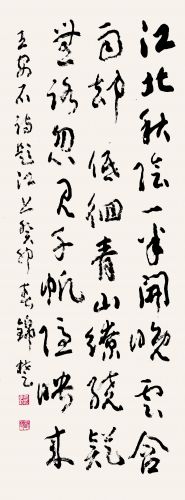 江北秋陰一半開晚雲含
雨却低徊青山繚繞疑
無路忽見千帆隱映來
王安石詩題江上癸卯春錦